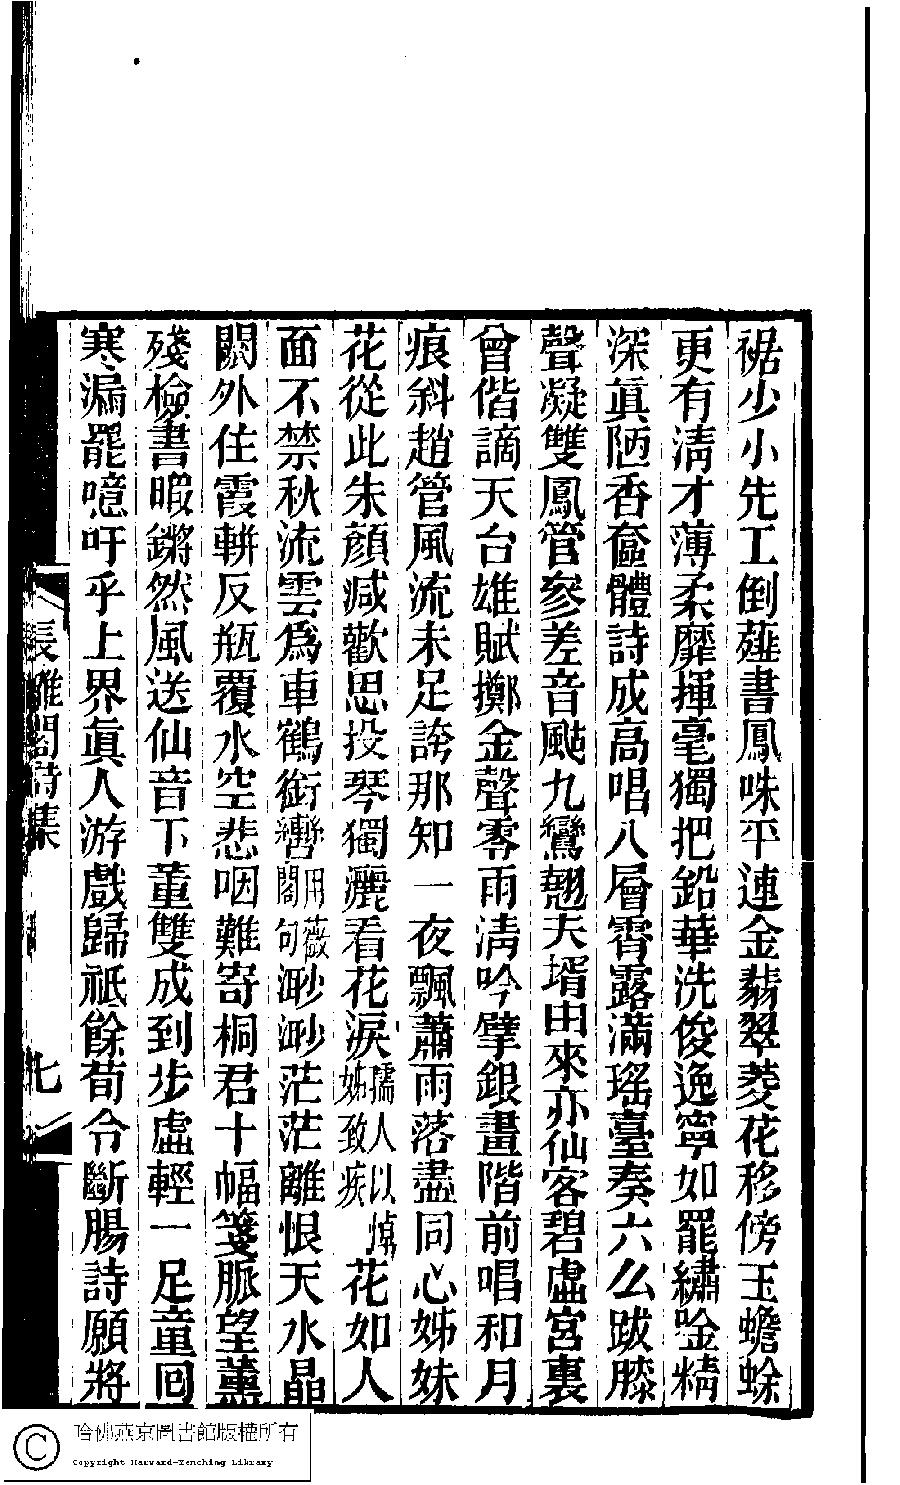 裾少小先工倒薤書鳳咮平連金翡翠菱花移傍玉蟾蜍
更有清才薄柔靡揮毫獨把鉛華洗俊逸寧如罷繡唫精
深眞陋香奩體詩成高唱八層霄露滿瑤臺奏六么跋膝
聲凝雙鳳管參差音颭九鸞翹夫壻由來亦仙客碧虛宮裏
曾偕謫天台雄賦擲金聲零雨清吟擘銀畫階前唱和月
痕斜趙管風流未足誇那知一夜飄蕭雨落盡同心姊妹
花從此朱顏減歡思投琴獨灑看花淚孺人以悼姊致疾花如人
面不禁秋流雲爲車鶴銜轡用薇閣句渺渺茫茫離恨天水晶
闕外住霞輧反瓶覆水空悲咽難寄桐君十幅箋脈望薰
殘檢書暇鏘然風送仙音下董雙成到步虛輕一足童回
寒漏罷噫吁乎上界眞人游戲歸祗餘荀令斷腸詩願將
長離閣詩集
七
哈佛燕京圖書館版權所有
Copyright Harvard-Yenching Library